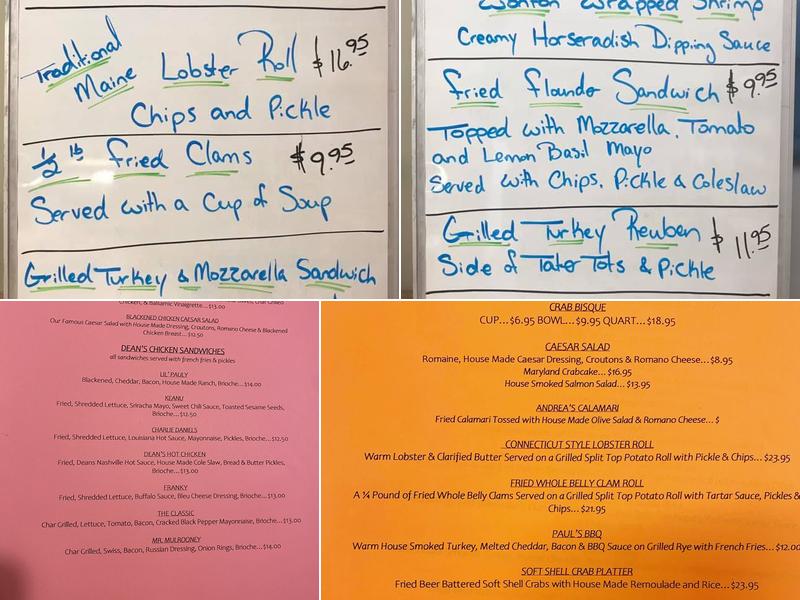 Traditional
Maine Lobster Roll $16.95
Chips and Pickle
1/2 lb Fried Clams $9.95
Served with a Cup of Soup
Grilled Turkey & Mozzarella Sandwich
Wonton Wrapped Shrimp
Creamy Horseradish Dipping Sauce
Fried Flounder Sandwich $9.95
Topped with Mozzarella, Tomato
and Lemon Basil Mayo
Served with Chips, Pickle & Coleslaw
Grilled Turkey Reuben $11.95
Side of Tater Tots & Pickle
Chicken, & Balsamic Vinaigrette...$13.00
BLACKENED CHICKEN CAESAR SALAD
Our Famous Caesar Salad with House Made Dressing, Croutons, Romano Cheese & Blackened
Chicken Breast...$12.50
DEAN'S CHICKEN SANDWICHES
all sandwiches served with french fries & pickles
LIL' PAULY
Blackened, Cheddar, Bacon, House Made Ranch, Brioche...$14.00
KEANU
Fried, Shredded Lettuce, Sriracha Mayo, Sweet Chili Sauce, Toasted Sesame Seeds,
Brioche...$12.50
CHARLIE DANIELS
Fried, Shredded Lettuce, Louisiana Hot Sauce, Mayonnaise, Pickles, Brioche...$12.50
DEAN'S HOT CHICKEN
Fried, Deans Nashville Hot Sauce, House Made Cole Slaw, Bread & Butter Pickles,
Brioche...$13.00
FRANKY
Fried, Shredded Lettuce, Buffalo Sauce, Bleu Cheese Dressing, Brioche...$13.00
THE CLASSIC
Char Grilled, Lettuce, Tomato, Bacon, Cracked Black Pepper Mayonnaise, Brioche...$13.00
MR. MULROONEY
Char Grilled, Swiss, Bacon, Russian Dressing, Onion Rings, Brioche...$14.00
CRAB BISQUE
CUP...$6.95 BOWL...$9.95 QUART...$18.95
CAESAR SALAD
Romaine, House Made Caesar Dressing, Croutons & Romano Cheese...$8.95
Maryland Crabcake...$16.95
House Smoked Salmon Salad...$13.95
ANDREA'S CALAMARI
Fried Calamari Tossed with House Made Olive Salad & Romano Cheese... $
CONNECTICUT STYLE LOBSTER ROLL
Warm Lobster & Clarified Butter Served on a Grilled Split Top Potato Roll with Pickle & Chips...$23.95
FRIED WHOLE BELLY CLAM ROLL
A ¼ Pound of Fried Whole Belly Clams Served on a Grilled Split Top Potato Roll with Tartar Sauce, Pickles &
Chips...$21.95
PAUL'S BBQ
Warm House Smoked Turkey, Melted Cheddar, Bacon & BBQ Sauce on Grilled Rye with French Fries...$12.00
SOFT SHELL CRAB PLATTER
Fried Beer Battered Soft Shell Crabs with House Made Remoulade and Rice...$23.95